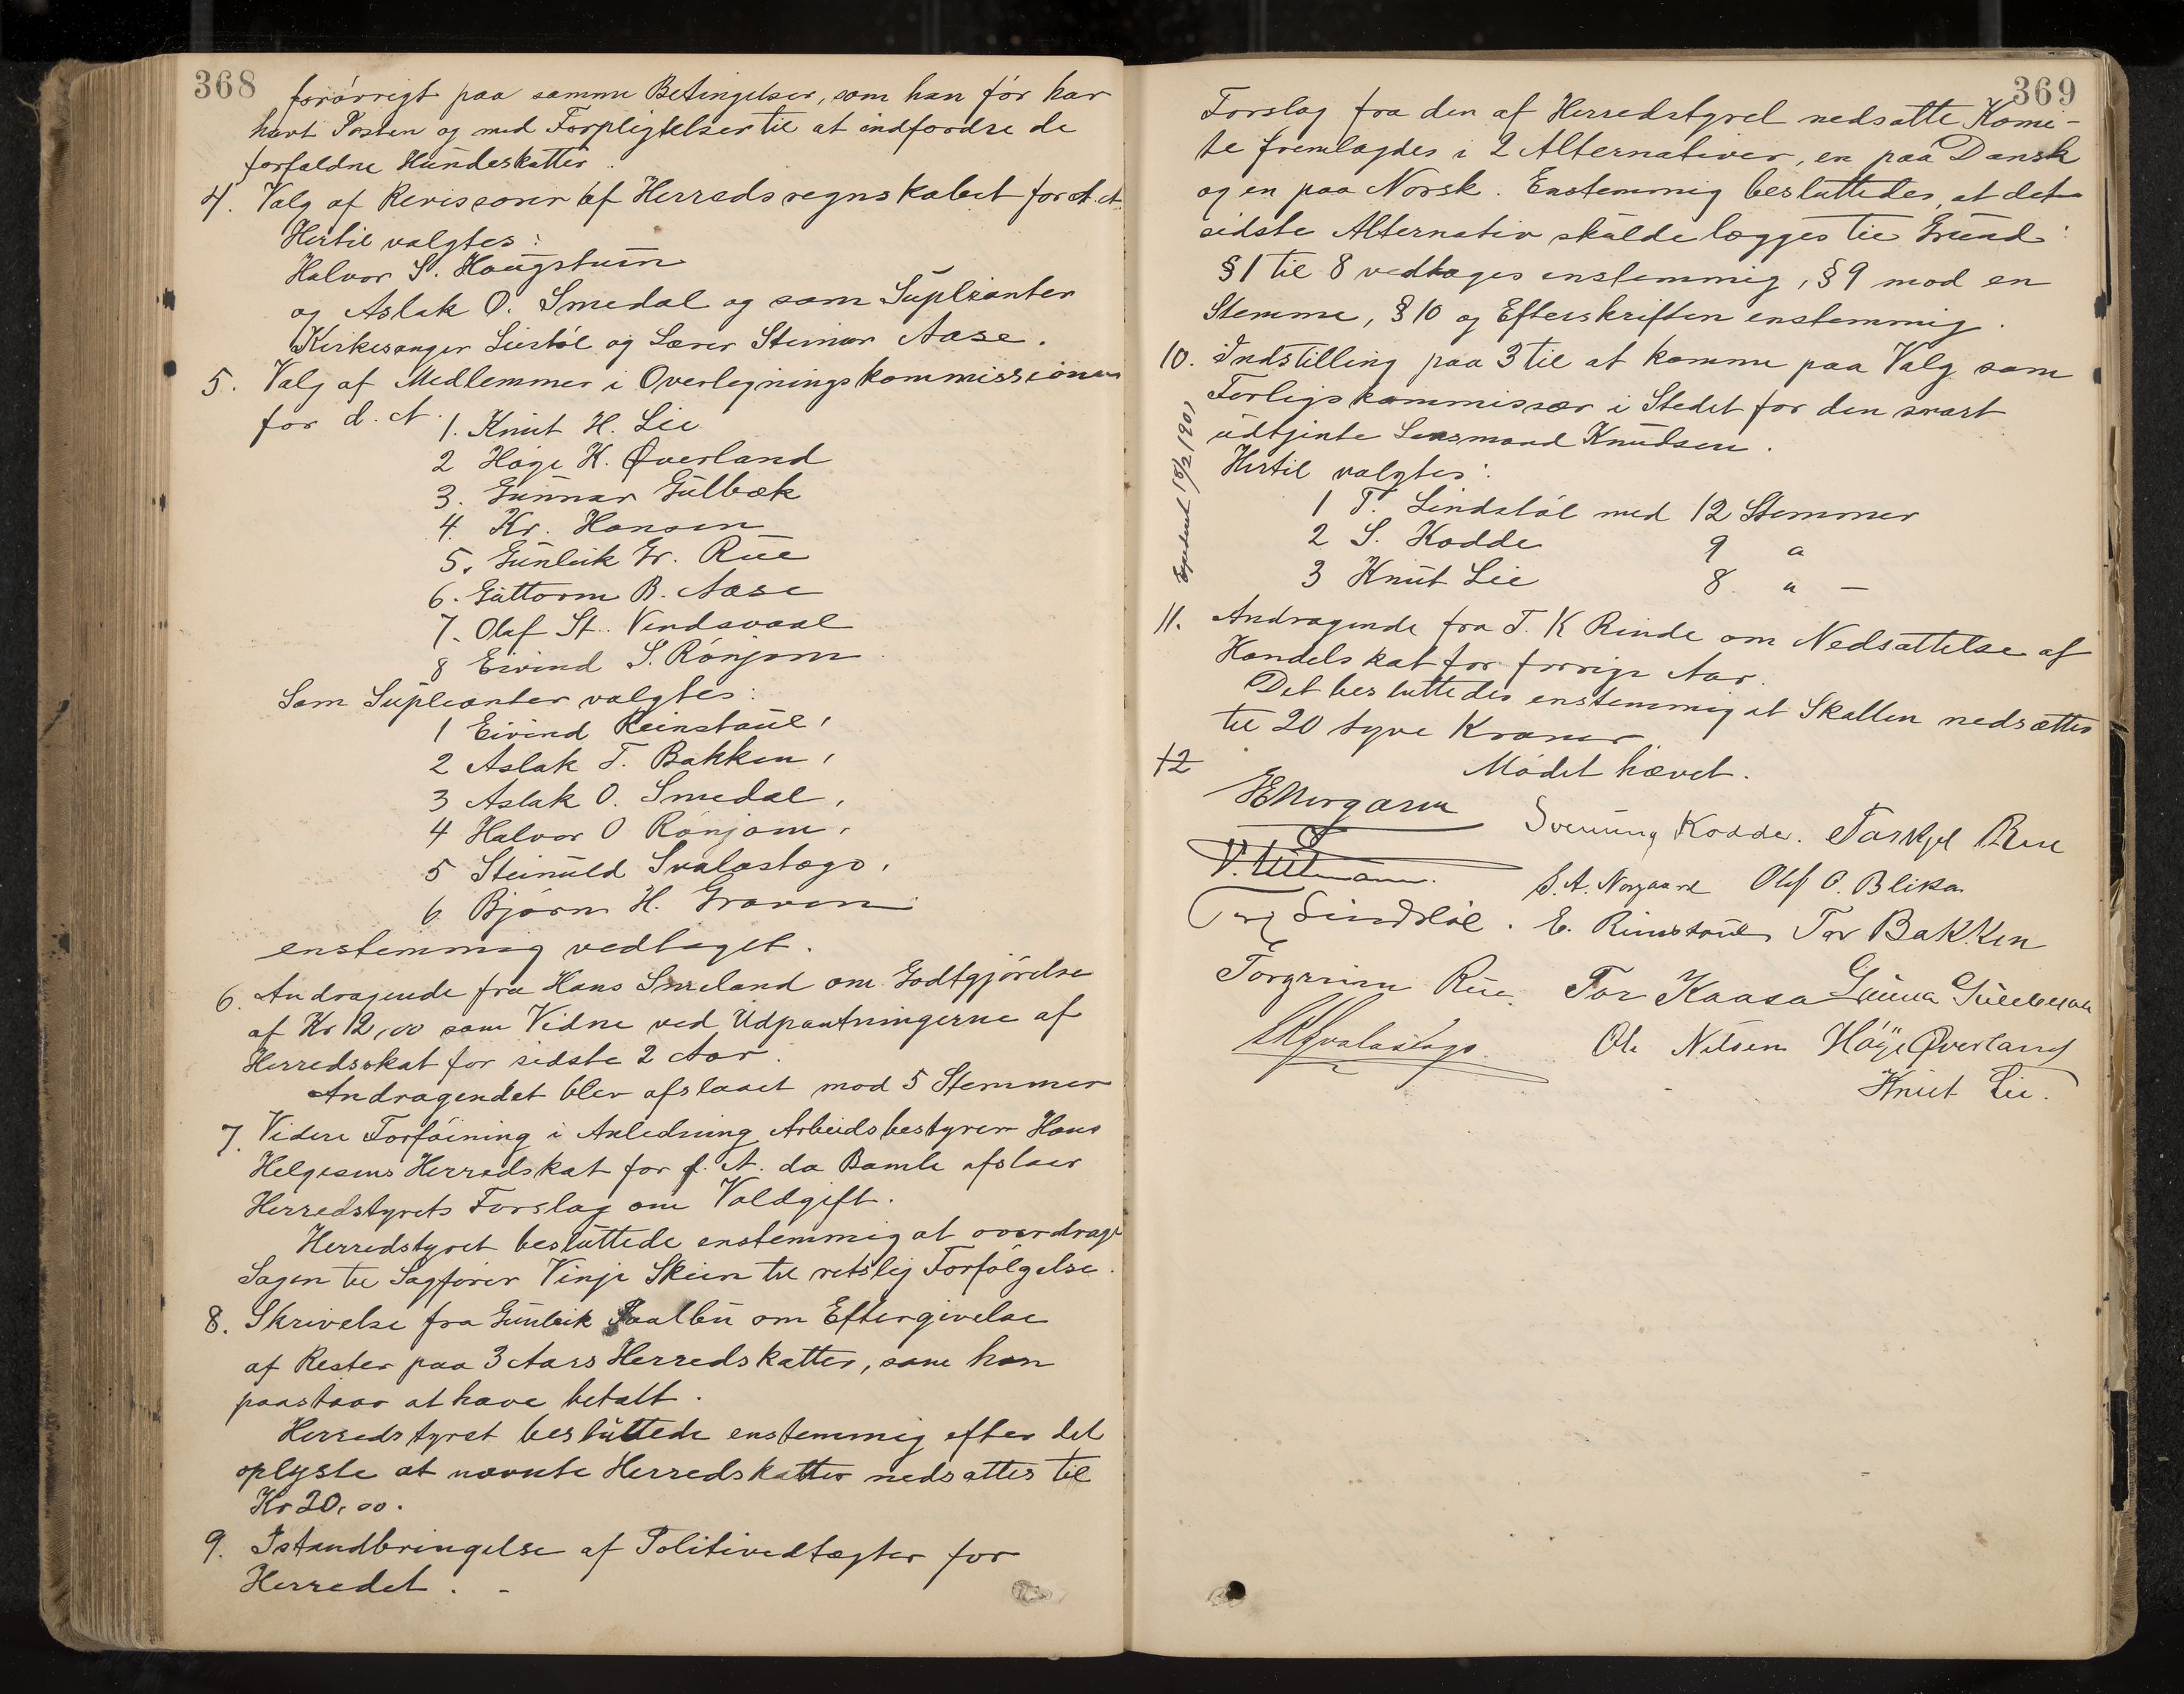 368
forøvrigt paa samme Betingelser, som han før har
havt Posten og med Forpligtelser til at indfordre de
forfaldne Hundeskatter.
4. Valg af Revisorer af Herredsregnskabet for d. A.
Hertil valgtes:
Halvor S. Haugstum
og Aslak O. Smedal og som Supleanter
Kirkesanger Lierbøl og Lærer Steinar Aase.
5. Valg af Medlemmer i Overligningskommissionen
for d. A.
1. Knut H. Lie
2 Høge K. Øverland
3. Gunnar Gulbæk
4. Kr. Hansen
5. Gunleik Gr. Rue
6. Guttorm B. Aase
7. Olaf St. Vendsvaal
8 Eivind S. Rønjom
Som Supleanter valgtes:
1 Eivind Reinstaul,
2 Aslak T. Bakken,
3 Aslak O. Smedal,
4 Halvor O Rønjom,
5 Steinuld Svalastogo,
6. Bjørn H. Graven
enstemmig vedtaget.
6. Andragende fra Hans Smeland om Godtgjørelse
af Kr 12,00 som Vidne ved Udpantningerne af
Herredsskat for sidste 2 Aar.
Andragendet blev afslaaet mod 5 Stemmer
7. Videre Forføining i Anledning Arbeidsbestyrer Hans
Helgesens Herredskat for f. A. da Bamle afslaar
Herredstyrets Forslag om Voldgift.
Herredstyret besluttede enstemmig at overdrage
Sagen til Sagfører Vinje Skien til retslig Forfølgelse.
8. Skrivelse fra Gunleik Paalbu om Eftergivelse
af Rester paa 3 Aars Herredskatter, som han
paastaar at have betalt.
Herredstyret besluttede enstemmig efter det
oplyste at nævnte Herredskatter nedsattes til
Kr 20,00.
9. Istandbringelse af Politivedtægter for
Herredet. -
369
Forslag fra den af Herredstyret nedsatte Komi-
te fremlagdes i 2 Alternativer, en paa Dansk
og en paa Norsk. Enstemmig besluttedes, at det
sidste Alternativ skulde lægges til Grund:
§ 1 til 8 vedtages enstemmig, § 9 mod en
Stemme, § 10 og Efterskriften enstemmig.
10. Indstilling paa 3 til at komme paa Valg som
Forligskommissær i Stedet for den snart
udtjente Lensmand Knudsen.
Hertil valgtes:
1 T. Lindstøl med 12 Stemmer
2 S. Kodde 9 "
3 Knut Lie 8 " —
Expederet 18/2 1901
11. Andragende fra T. K Rinde om Nedsættelse af
Handelskat for forrige Aar.
Det besluttedes enstemmig at Skatten nedsættes
til 20 tyve Kroner
12 Mødet hævet.
Svenung Kodde. Tarkjel Rue
V. Ullmann. S. A. Norgaard Olaf O. Blika
Lindstøl. E. Rinustøul Tor Bakken
Torgrim Rue. Tor Kaasa Gunna Gulbæk
Svalastoga Ole Nilsen Høye Øverland
Knut Lie.